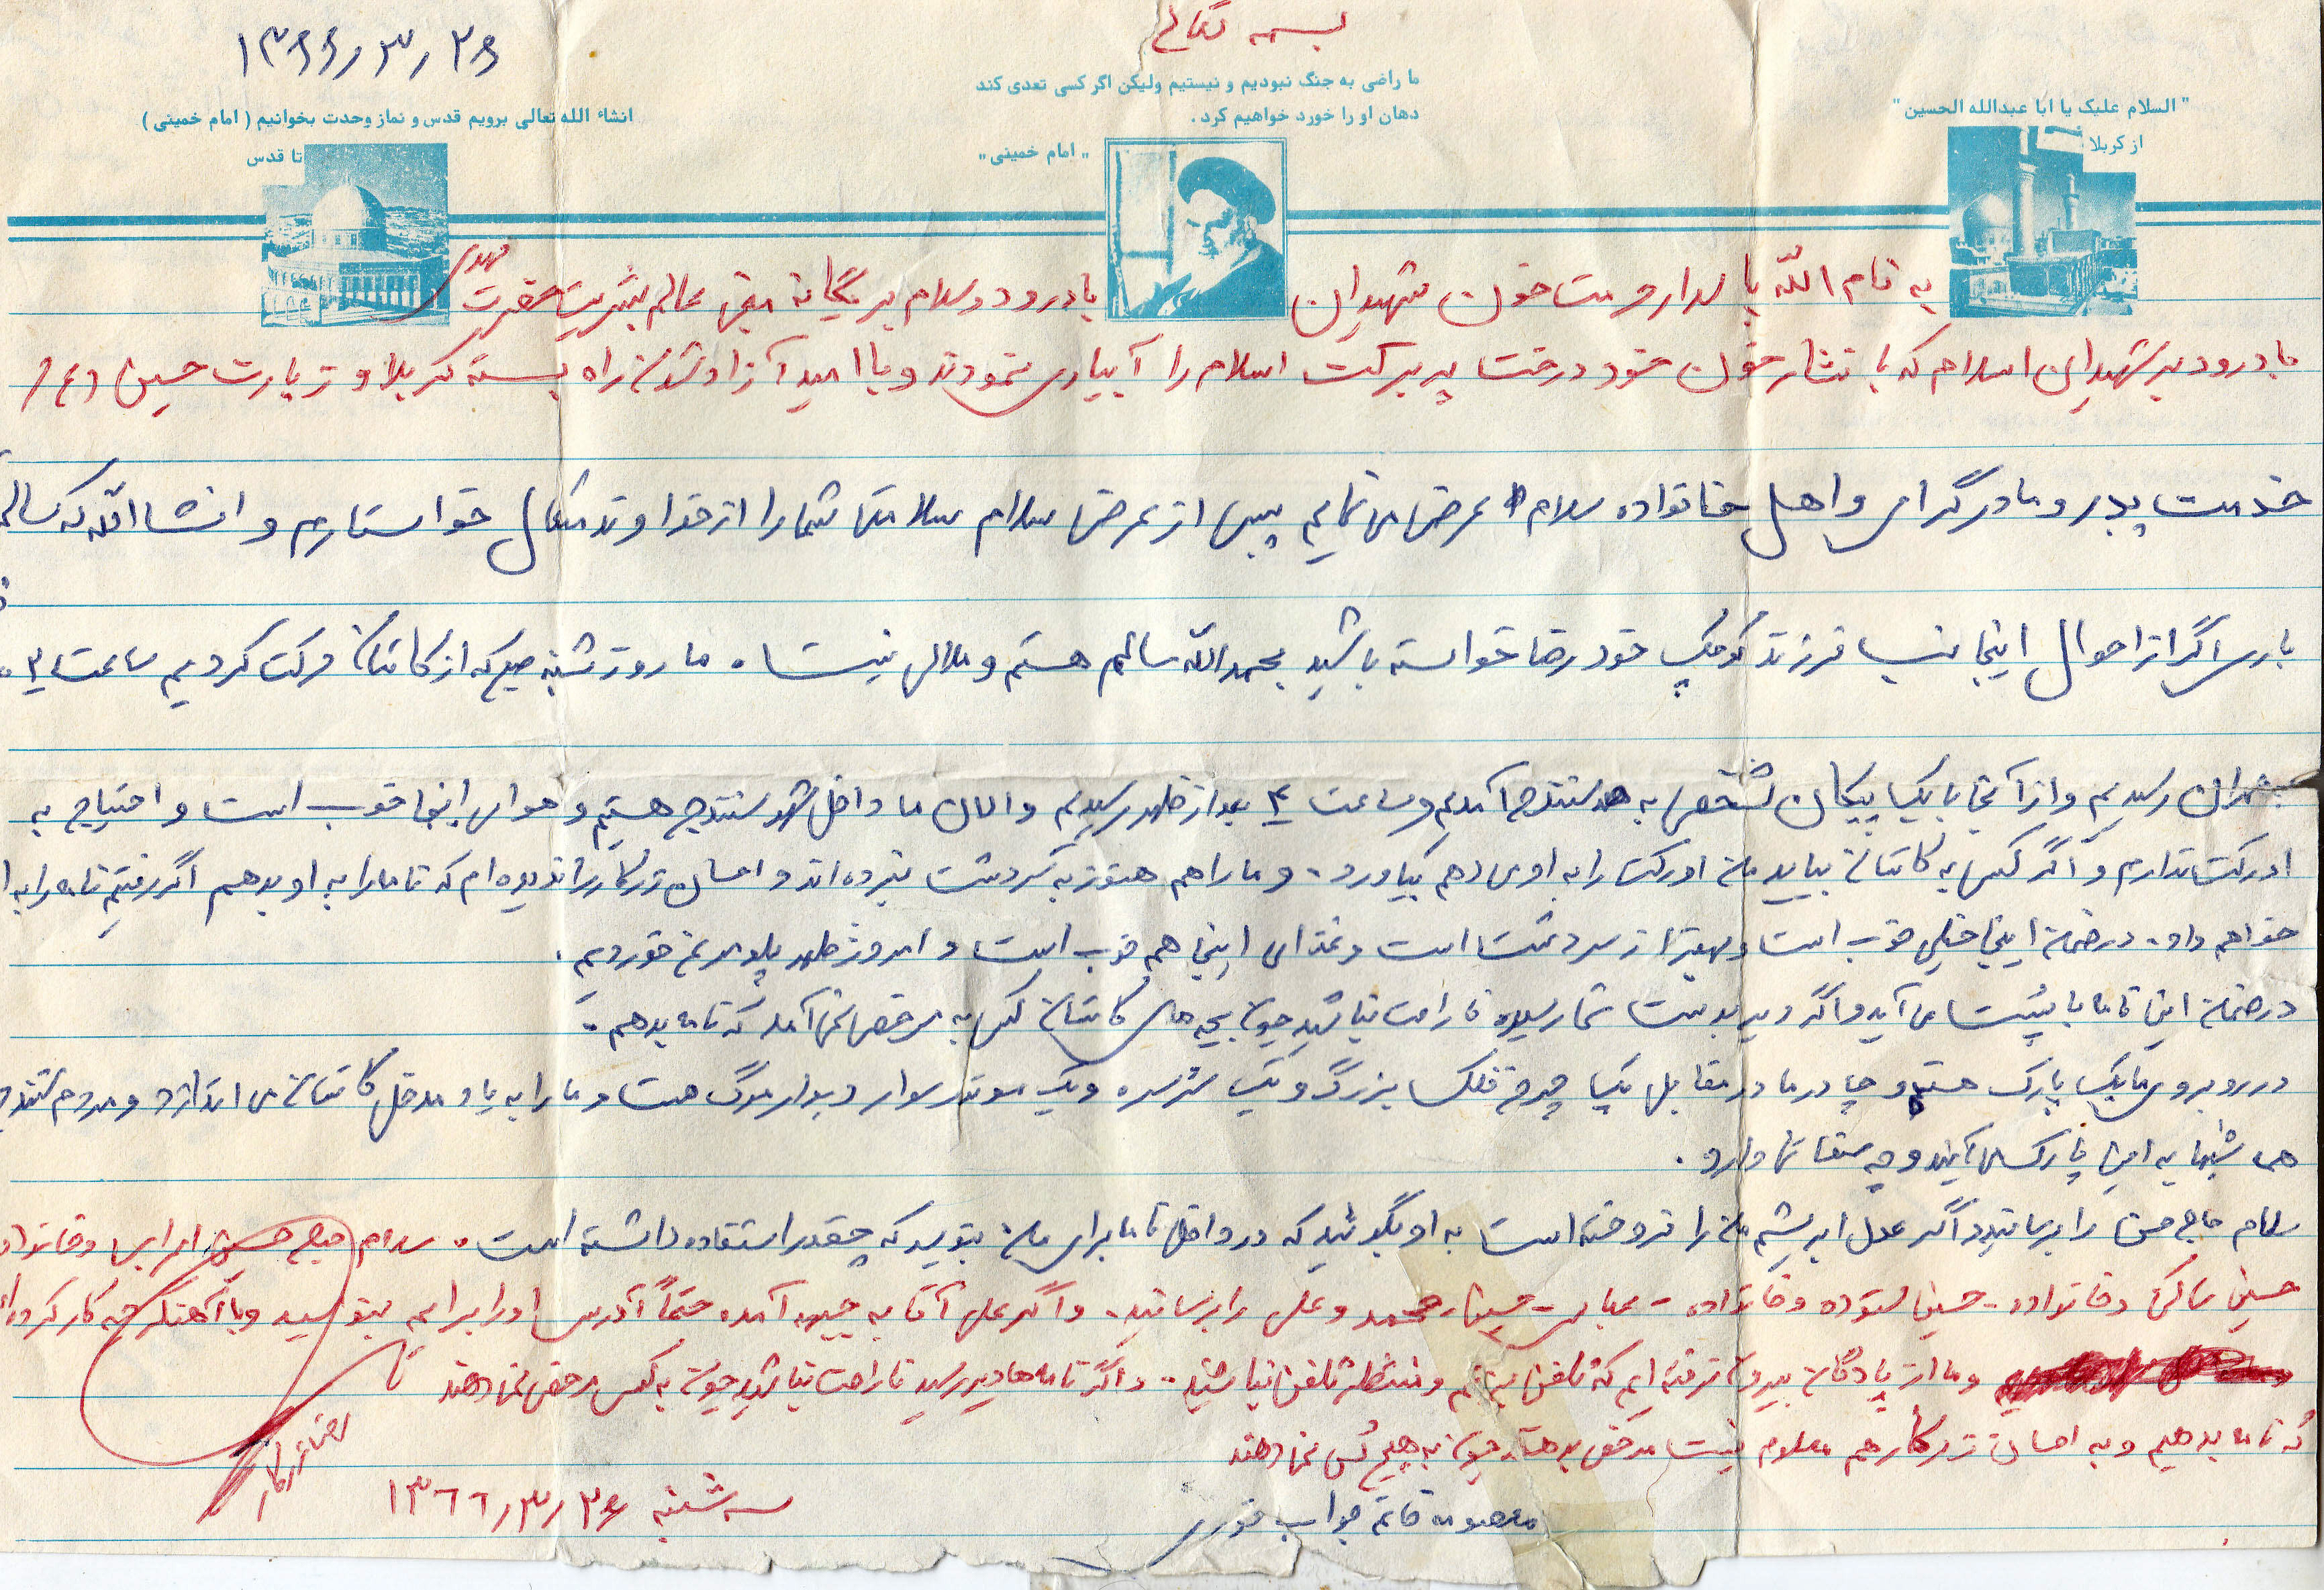 بسمه تعالی
۱۳۶۶/۳/۲۶
ما راضی به جنگ نبودیم و نیستیم ولیکن اگر کسی تعدی کند
دهان او را خورد خواهیم کرد .
" امام خمینی "
" السلام علیک یا ابا عبدالله الحسین "
از کربلا
انشاء الله تعالی برویم قدس و نماز وحدت بخوانیم ( امام خمینی )
تا قدس
به نام الله پاسدار حرمت خون شهیدان با درود و سلام بر یگانه منجی عالم بشریت حضرت مهدی
با درود بر شهیدان اسلام که با نثار خون خود درخت پر برکت اسلام را آبیاری نمودند و با امید آزاد شدن راه بسته کربلا و زیارت حسین (ع)
خدمت پدر و مادر گرامی و اهل خانواده سلام عرض می نمایم پس از عرض سلام سلامتی شما را از خداوند متعال خواستارم و انشاالله که سالم
باری اگر از احوال اینجانب فرزند کوچک خود رضا خواسته باشید بحمدالله سالم هستم و ملالی نیست . ما روز شنبه صبح که از کاشان حرکت کردیم ساعت
تهران رسیدیم و از آنجا با یک پیکان شخصی به سنندج آمدیم و ساعت ۴ بعد از ظهر رسیدیم و الان ما داخل شهر سنندج هستیم و هوای اینجا خوب است و احتیاج به
اورکت ندارم و اگر کسی به کاشان بیاید من اورکت را به او می دهم بیاورد . و ما را هم هنوز به سردشت نبرده اند و احسان زرکار را ندیده ام که نامه را به او بدهم اگر رفتیم نامه را به او
خواهم داد . در ضمن اینجا خیلی خوب است و بهتر از سردشت است و غذای اینجا هم خوب است و امروز ظهر پلو مرغ خوردیم .
در ضمن این نامه با پست می آید و اگر دیر بدست شما رسید ناراحت نباشید چون بچه های کاشان کسی به مرخصی نمی آمد که نامه بدهم .
در روبروی ما یک پارک هست و چادر ما در مقابل یک چرخ فلک بزرگ و یک سرسره و یک موتور سوار دیوار مرگ هست و ما را به یاد کاشان می اندازد و مردم سنندج
هم شبها به این پارک می آیند و چه صفائی دارد .
سلام حاج حسن را برسانید و اگر عدل ابریشم من را فروخته است به او بگوئید که در داخل نامه برای من بنویسد که چقدر استفاده داشته است . سلام حاج حسین و خانواده
حسین و خانواده - حسین ستوده و خانواده - عباس - حسین - محمد و علی را برسانید . و اگر علی آقا به جبهه آمده حتماً آدرس او را برایم بنویسید و با آهنگر چه کار کرده
و ما از پادگان بیرون نرفته ایم که تلفن بزنیم و منتظر تلفن نباشید . و اگر نامه ها دیر رسید ناراحت نباشید چون به کسی مرخصی نمی دهند
که نامه بدهیم و به احسان زرکار هم معلوم نیست مرخصی بدهند چون به هیچ کس نمی دهند
سه شنبه ۱۳۶۶/۳/۲۶
جواب فوری